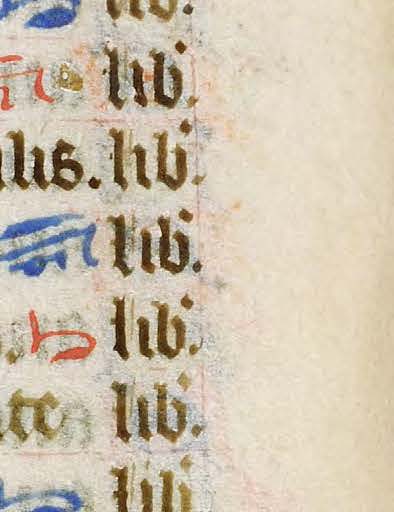 lib.
lib.
lis. lib.
lib.
lib.
te lib.
lib